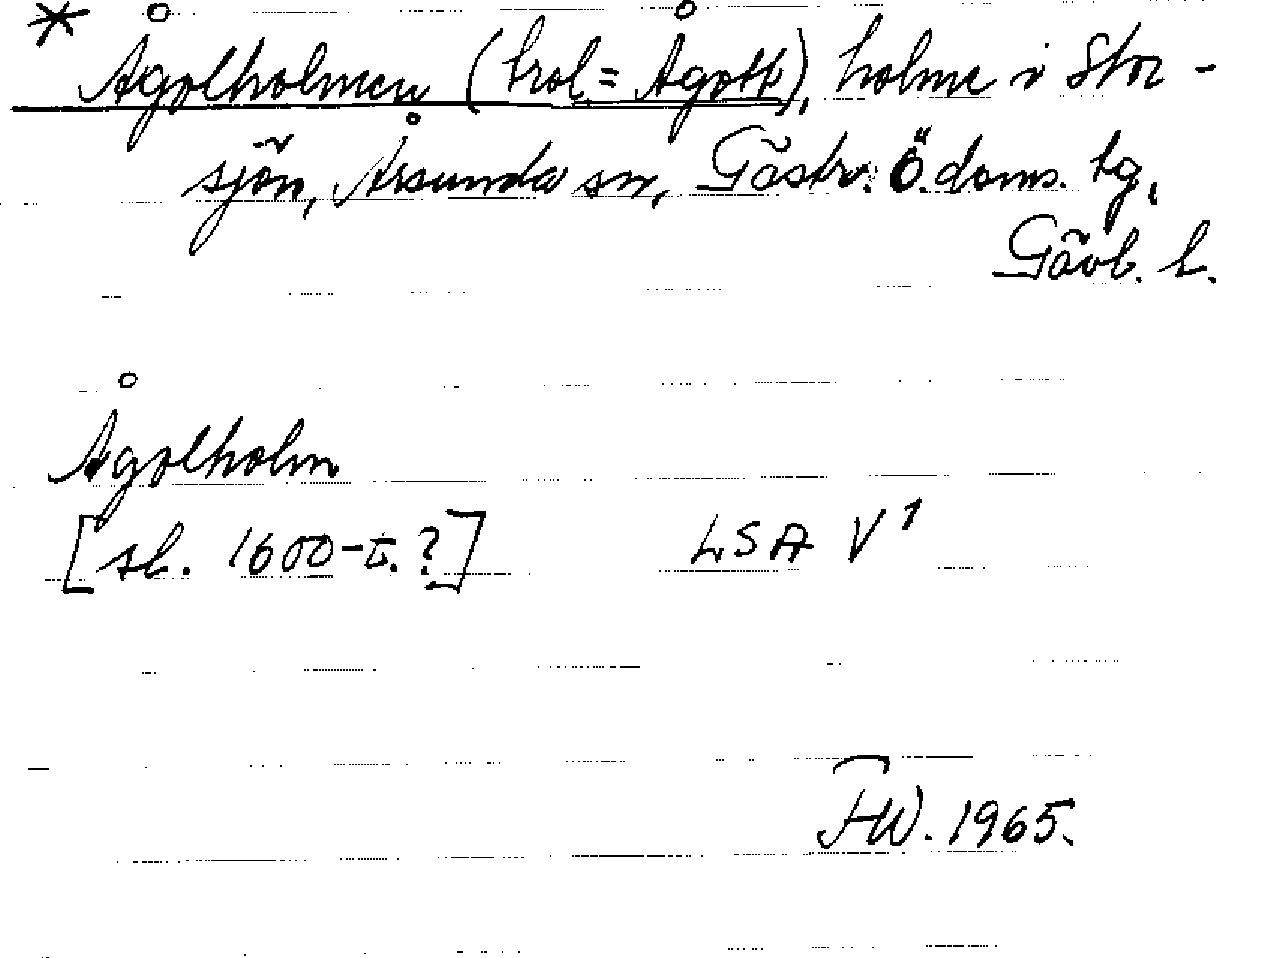 * Ågolholmen (trol. = Ågott), holme i Stor-
sjön, Årsunda sn, Gästr. Ö. doms. tg,
Gävl. l.
Ågolholm
[sl. 1600-t.?] LSA V 1
FW. 1965.